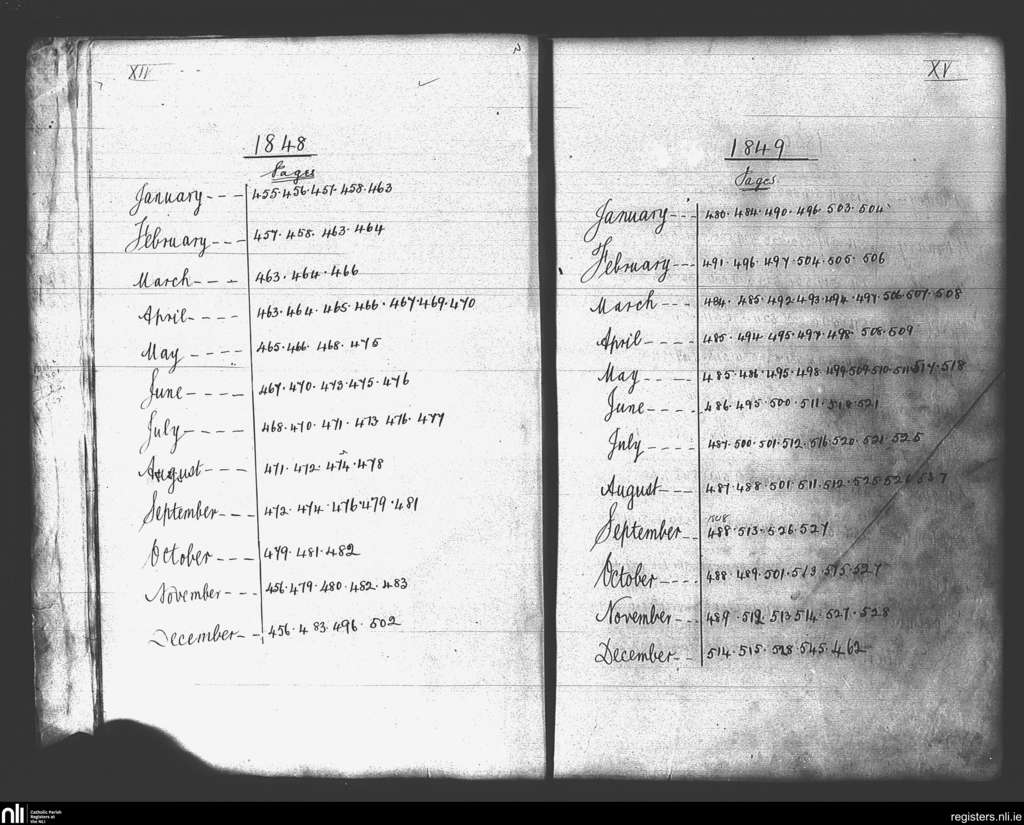 XIV
1848
Pages
January - - - 455.456.457.458.463
February - - - 457.458.463.464
March - - - 463.464.466
April - - - - 463.464.465.466.467.469.470
May - - - - 465.466.468.475
June - - - - 467.470.473.475.476
July - - - - 468.470.471.473.476.477
August - - - 471.472.474.478
September - - - 472.474.476.479.481
October - - - 479.481.482
November - - - 456.479.480.482.483
December - - 456.483.496.502
XV
1849
Pages
January - - - 480.484.490.496.503.504
February - - - 491.496.497.504.505.506
March - - - 484.485.492.493.494.497.506.507.508
April - - - - 485.494.495.497.498.508.509
May - - - - 485.486.495.498.499.509.510.511.517.518
June - - - - 486.495.500.511.518.521
July - - - - 487.500.501.512.516.520.521.525
August - - - 487.488.501.511.512.525.526.537
September - - 488.513.526.527
October - - - - 488.489.501.513.515.527
November - - - 489.512.513.514.527.528
December - - 514.515.528.545.462
nli
Catholic Parish
Registers at
the NLI
registers.nli.ie